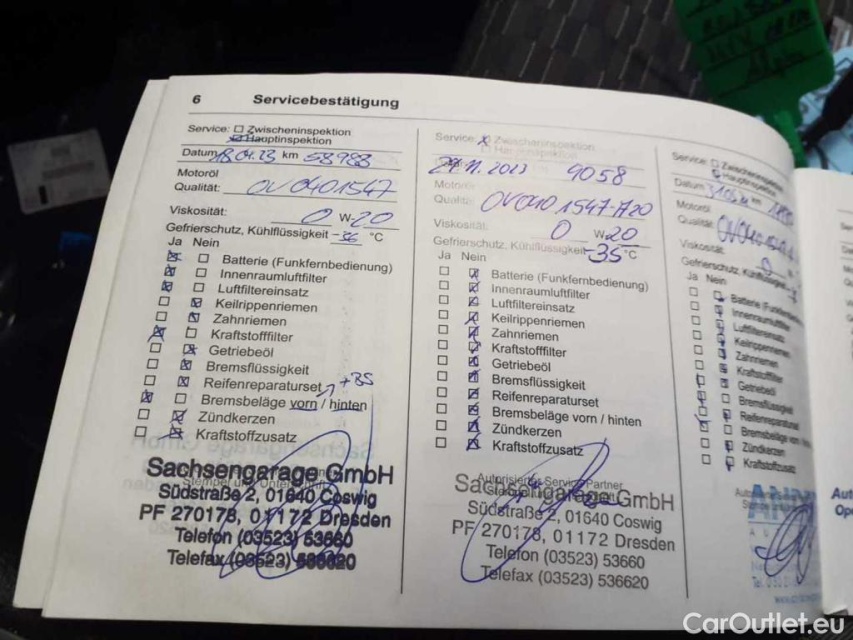 6 Servicebestätigung
Service: Zwischeninspektion
Hauptinspektion
Datum 18.04.23 km 58988
Motoröl
Qualität: OV0401547
Viskosität: 0 W-20
Gefrierschutz, Kühlflüssigkeit -36 °C
Ja Nein
Batterie (Funkfernbedienung)
Innenraumluftfilter
Luftfiltereinsatz
Keilrippenriemen
Zahnriemen
Kraftstofffilter
Getriebeöl
Bremsflüssigkeit
Reifenreparaturset → +BS
Bremsbeläge vorn / hinten
Zündkerzen
Kraftstoffzusatz
Sachsengarage GmbH
Südstraße 2, 01640 Coswig
PF 270178, 01172 Dresden
Telefon (03523) 53660
Telefax (03523) 536620
Service: x Zwischeninspektion
Hauptinspektion
11.2023 9058
Motoröl
Qualität: OV0401547-A20
Viskosität: 0 W-20
Gefrierschutz, Kühlflüssigkeit -35 °C
Ja Nein
Batterie (Funkfernbedienung)
Innenraumluftfilter
Luftfiltereinsatz
Keilrippenriemen
Zahnriemen
Kraftstofffilter
Getriebeöl
Bremsflüssigkeit
Reifenreparaturset
Bremsbeläge vorn / hinten
Zündkerzen
Kraftstoffzusatz
Autorisierter Service Partner
Sachsengarage GmbH
Südstraße 2, 01640 Coswig
PF 270178, 01172 Dresden
Telefon (03523) 53660
Telefax (03523) 536620
Service: Zwischeninspektion
Hauptinspektion
Datum km
Motoröl
Qualität:
Viskosität: 0
Gefrierschutz, Kühlflüssigkeit
Ja Nein
Batterie
Innenraumluftfilter
Luftfiltereinsatz
Keilrippenriemen
Zahnriemen
Kraftstofffilter
Getriebeöl
Bremsflüssigkeit
Reifenreparaturset
Bremsbeläge
Zündkerzen
Kraftstoffzusatz
CarOutlet.eu